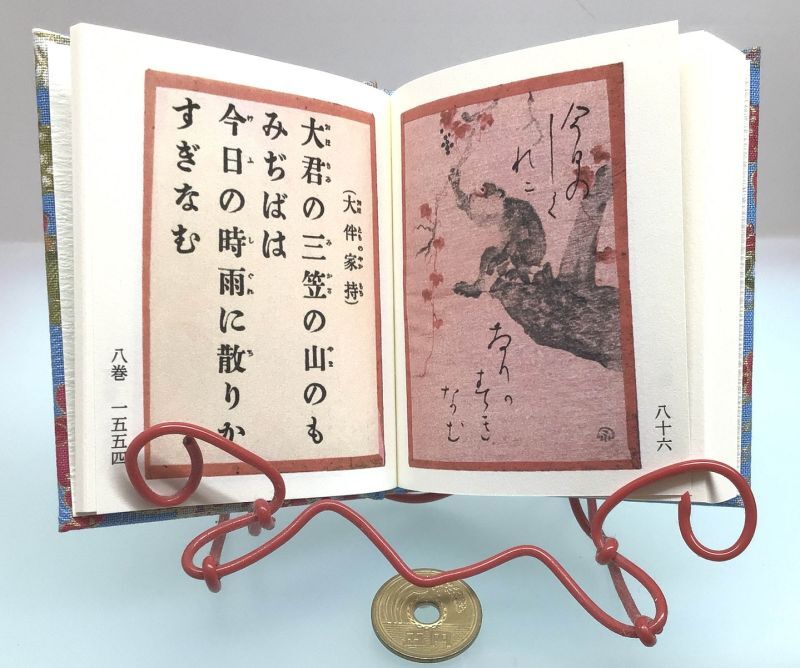 今日の
しく
れに
ちりか
すき
なむ
八十六
(大伴家持)
大君の三笠の山のも
みぢばは
今日の時雨に散りか
すぎなむ
八巻 一五五四
五円